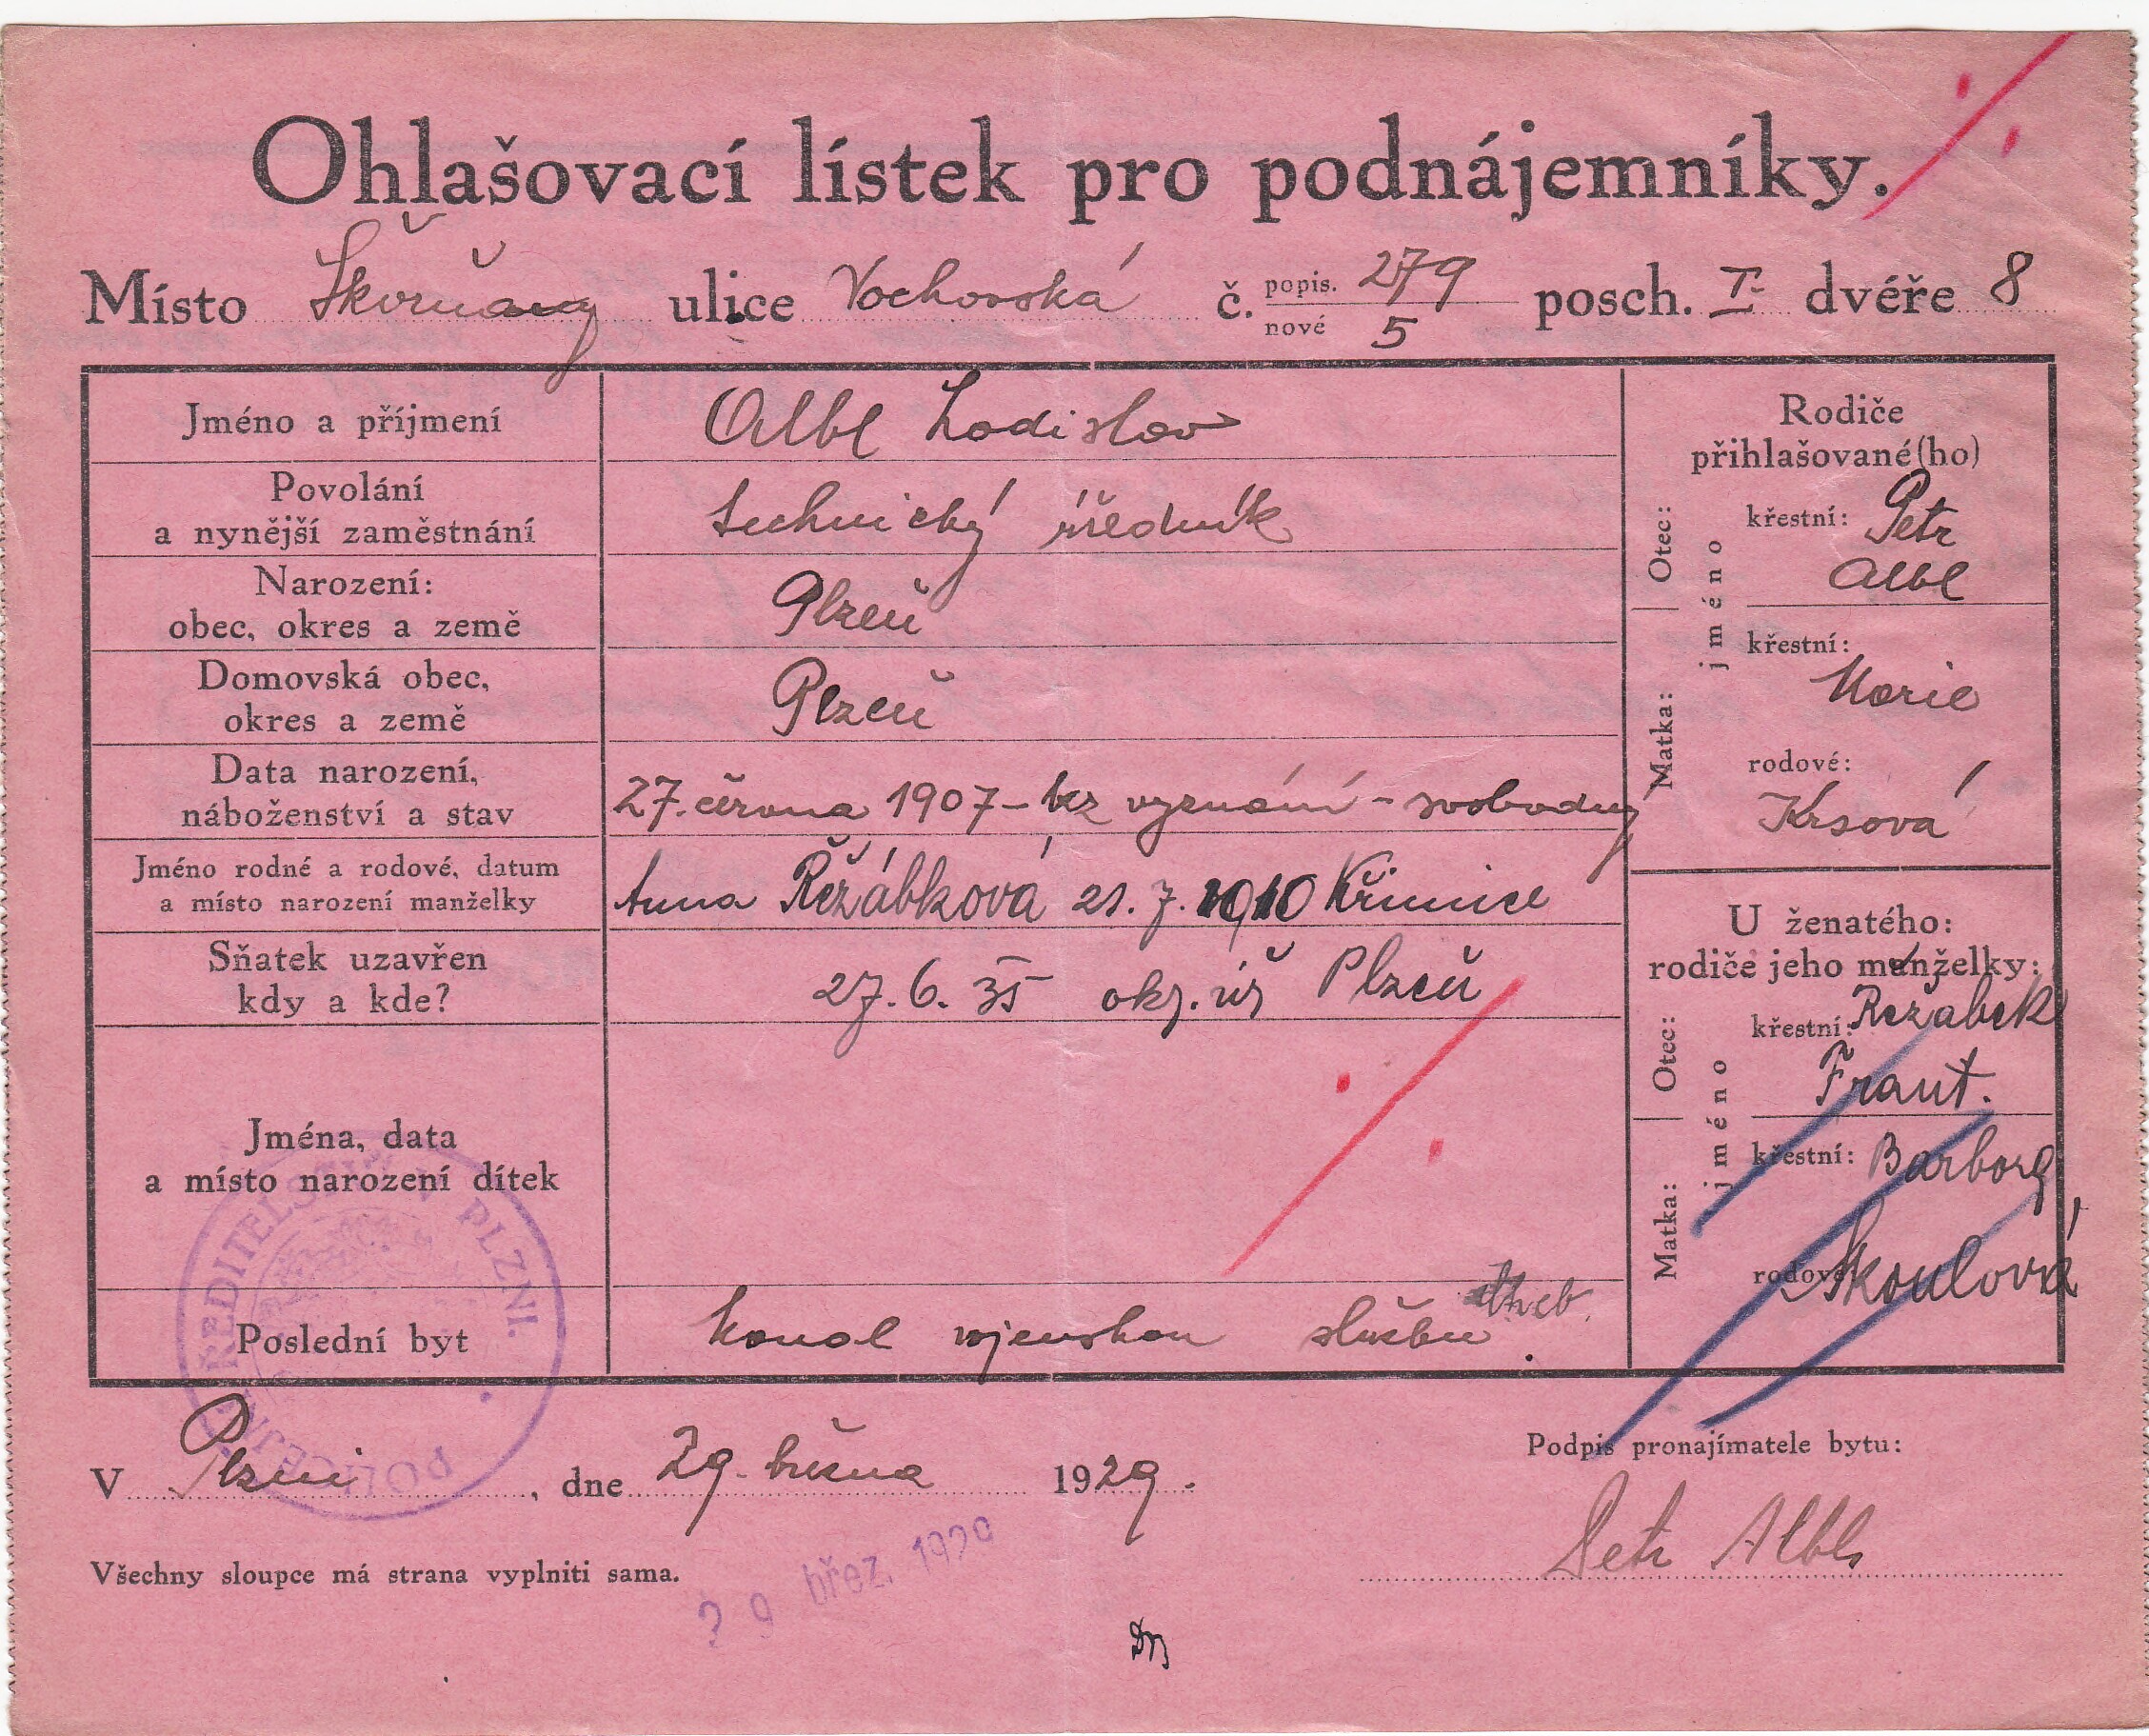 Ohlašovací lístek pro podnájemníky.
Místo Škvrňany ulice Vochovská č. popis. 279 nové 5 posch. I. dvéře 8
Jméno a příjmení
Albl Ladislav
Povolání
a nynější zaměstnání
technický úředník
Narození:
obec, okres a země
Plzeň
Domovská obec,
okres a země
Plzeň
Data narození,
náboženství a stav
27. června 1907 - bez vyznání - svobodný
Jméno rodné a rodové, datum
a místo narození manželky
Anna Řežábková 21. 7. 1910 Křimice
Sňatek uzavřen
kdy a kde?
27. 6. 35 okr. úř Plzeň
Jména, data
a místo narození dítek
Poslední byt
konal vojenskou službu Cheb.
Rodiče
přihlašované(ho)
Otec:
jméno
křestní: Petr
Albl
Matka:
křestní:
Marie
rodové:
Krsová
U ženatého:
rodiče jeho manželky:
Otec:
jméno
křestní: Řežabek
Frant.
Matka:
křestní: Barbora
rodové: Škoulová
POLICEJNÍ ŘEDITELSTVÍ V PLZNI.
V Plzni, dne 29. března 1929.
Podpis pronajímatele bytu:
Petr Albl
Všechny sloupce má strana vyplniti sama.
29 břez. 1929